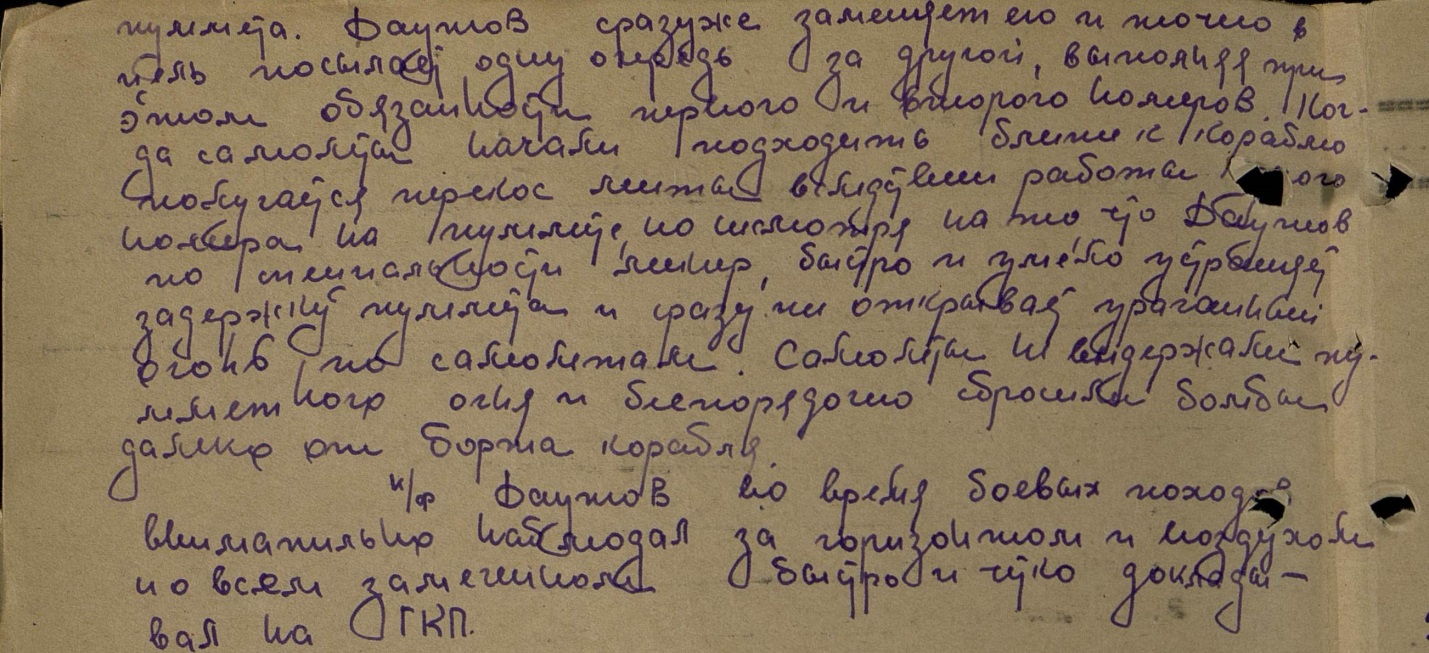 пулемета. Даутов сразуже замещает его и точно в
цель посылает одну очередь за другой, выполняя при
этом обязанности первого и второго номеров. Ког-
да самолеты начали подходить ближе к кораблю
получается перекос ленты вследствии работы
номера на пулемете, но несмотря на то, что Даутов
по специальности минер, быстро и умело устраняет
задержку пулемета и сразу же открывает ураганный
огонь по самолетам. Самолеты не выдержали пу-
леметного огня и беспорядочно сбросили бомбы
далеко от борта корабля.
к/ф Даутов во время боевых походов
внимательно наблюдал за горизонтом и воздухом
и о всем замеченном быстро и чутко доклады-
вал на ГКП.